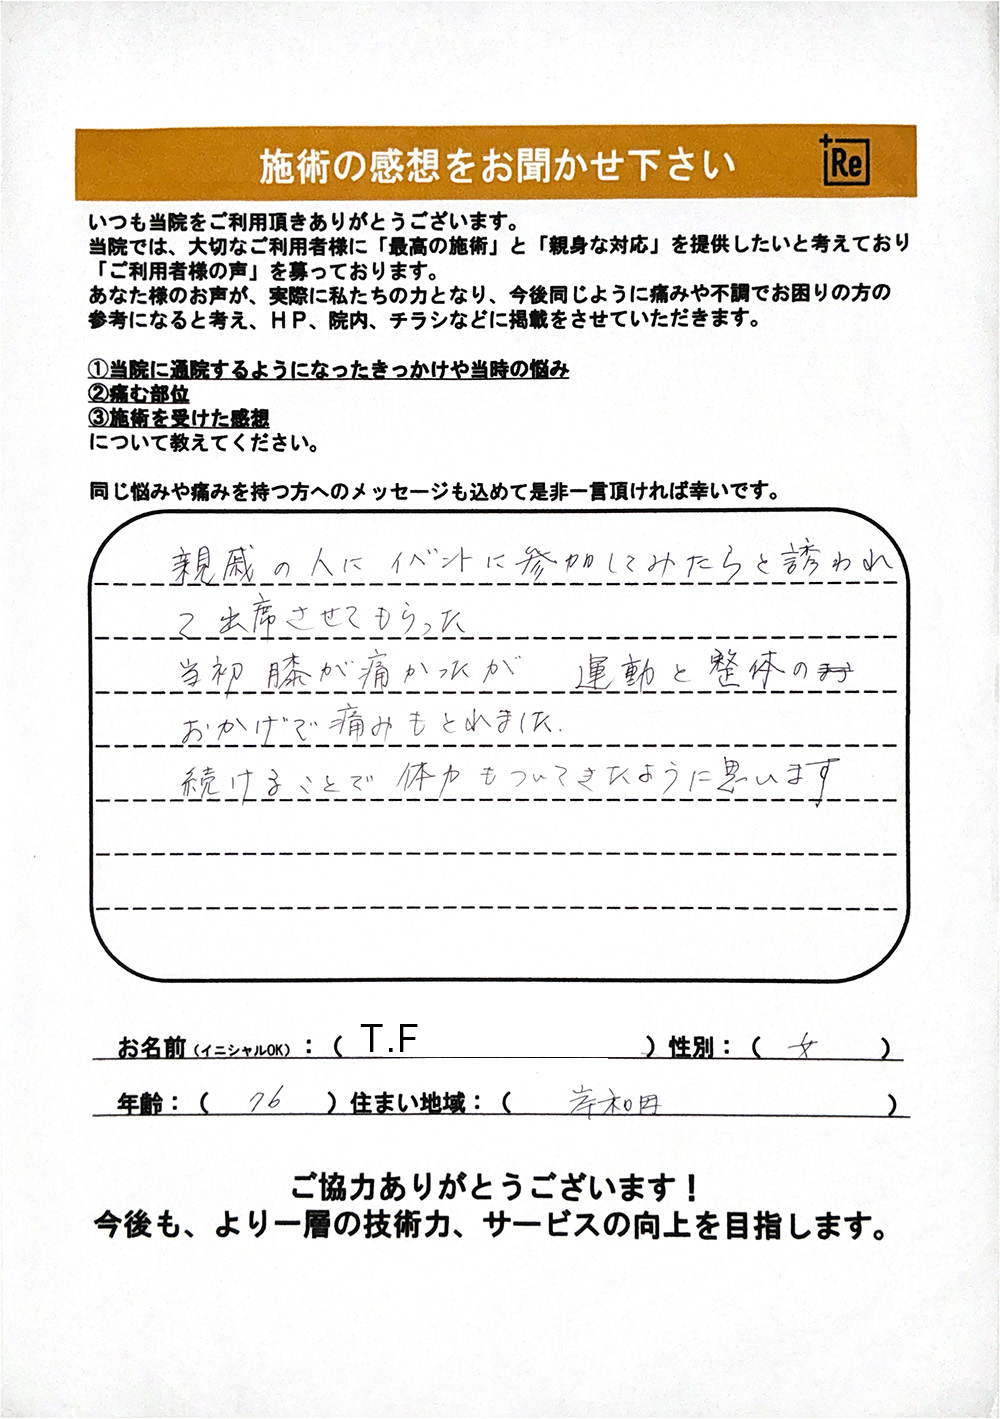 施術の感想をお聞かせ下さい
+Re
いつも当院をご利用頂きありがとうございます。
当院では、大切なご利用者様に「最高の施術」と「親身な対応」を提供したいと考えており
「ご利用者様の声」を募っております。
あなた様のお声が、実際に私たちの力となり、今後同じように痛みや不調でお困りの方の
参考になると考え、ＨＰ、院内、チラシなどに掲載をさせていただきます。
①当院に通院するようになったきっかけや当時の悩み
②痛む部位
③施術を受けた感想
について教えてください。
同じ悩みや痛みを持つ方へのメッセージも込めて是非一言頂ければ幸いです。
親戚の人に イベントに参加してみたらと誘われ
て出席させてもらった
当初 膝が痛かったが 運動と整体の
おかげで痛みもとれました.
続けることで 体力もついてきたように思います
お名前(イニシャルOK)：（ T.F ）性別：（ 女 ）
年齢：（ 76 ）住まい地域：（ 岸和田 ）
ご協力ありがとうございます！
今後も、より一層の技術力、サービスの向上を目指します。